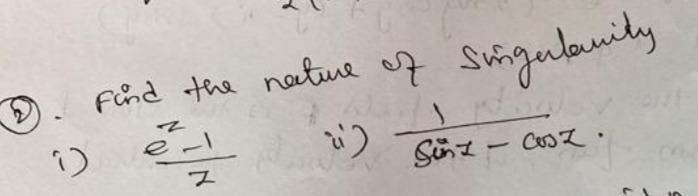 ②. Find the nature of Singularity
i) (e^z - 1)/z ii) 1/(Sinz - cosz).